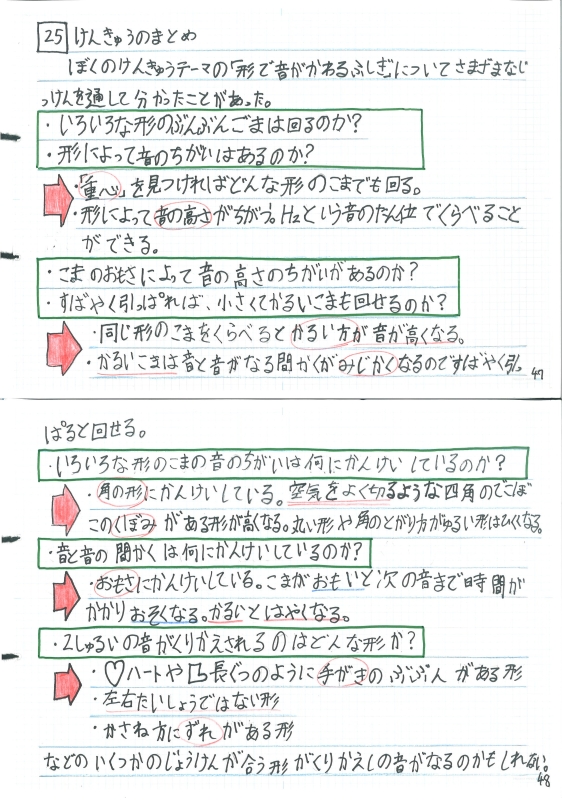 25 けんきゅうのまとめ
ぼくのけんきゅうテーマの「形で音がかわるふしぎ」についてさまざまなじ
っけんを通して分かったことがあった。
・いろいろな形のぶんぶんごまは回るのか?
・形によって音のちがいはあるのか?
・「重心」を見つければどんな形のこまでも回る。
・形によって音の高さがちがう。Hzという音のたん位でくらべること
ができる。
・こまのおもさによって音の高さのちがいがあるのか?
・すばやく引っぱれば、小さくてかるいこまも回せるのか?
・同じ形のこまをくらべるとかるい方が音が高くなる。
・かるいこまは音と音がなる間かくがみじかくなるのですばやく引っ
47
ぱると回せる。
・いろいろな形のこまの音のちがいは何にかんけいしているのか?
・角の形にかんけいしている。空気をよく切るような四角のでこぼ
このくぼみがある形が高くなる。丸い形や角のとがり方がゆるい形はひくくなる。
・音と音の間かくは何にかんけいしているのか?
・おもさにかんけいしている。こまがおもいと次の音まで時間が
かかりおそくなる。かるいとはやくなる。
・2しゅるいの音がくりかえされるのはどんな形か?
・♡ハートや長ぐつのように手がきのぶぶんがある形
・左右たいしょうではない形
・かさね方にずれがある形
などのいくつかのじょうけんが合う形がくりかえしの音がなるのかもしれない。
48